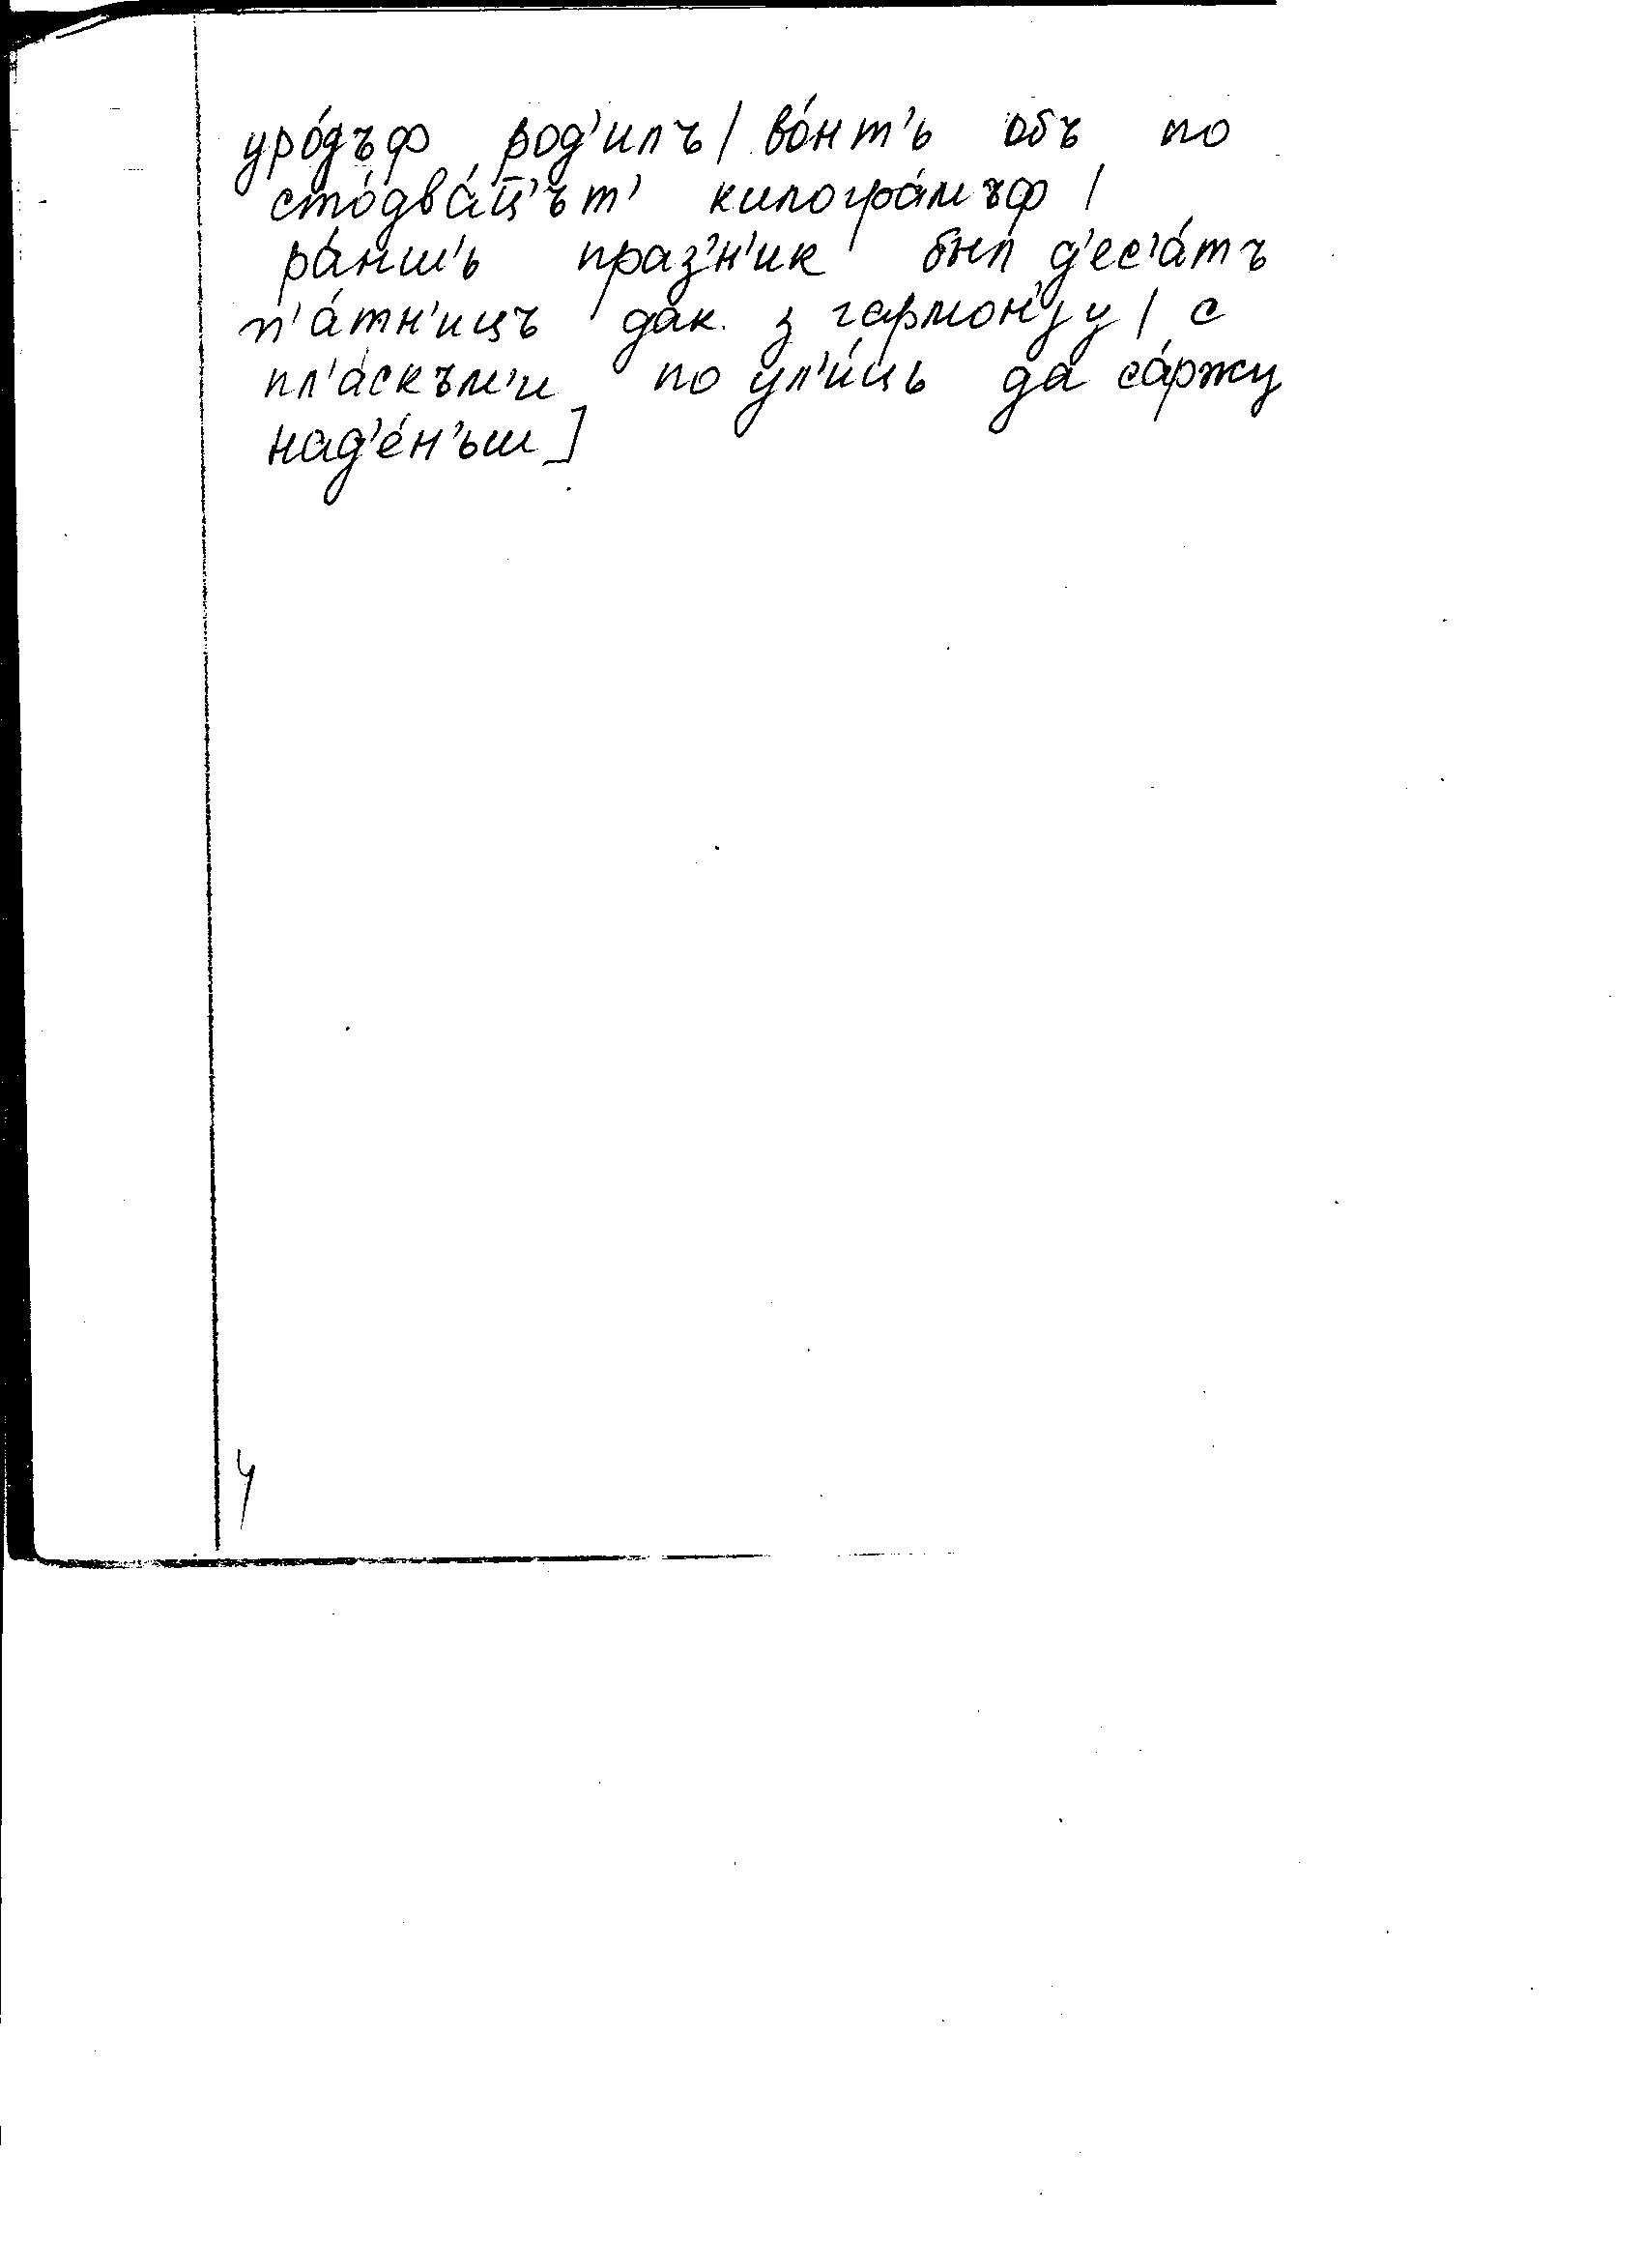 уро́дъф род'илъ / во́нт'ь объ по
сто́два́ц̅'ът' килогра́мъф /
ра́нш'ь праз'н'ик был д'ес'а́тъ
п'а́тн'ицъ дак з гармон'jу / с
пл'а́скъм'и по ул'и́ць да са́ржу
над'е́н'ьш]
4